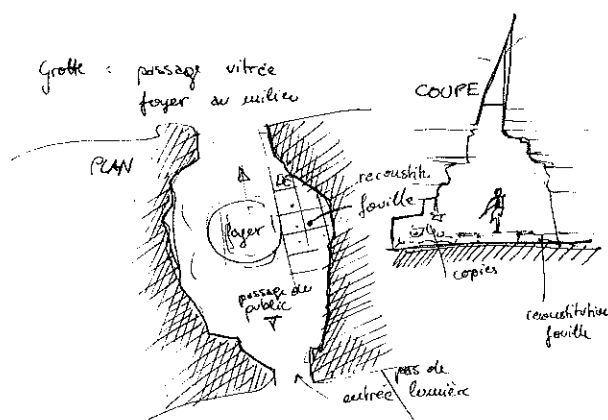 Grotte : passage vitrée
foyer au milieu
PLAN
foyer
reconstit.
fouille
passage du
public
entrée
pas de
lumière
COUPE
copies
reconstitution
fouille